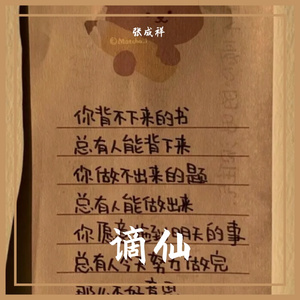 张成祥
你背不下来的书
总有人能背下来
你做不出来的题
总有人能做出来
你愿意拖到明天的事
谪仙
总有人今天努力做完